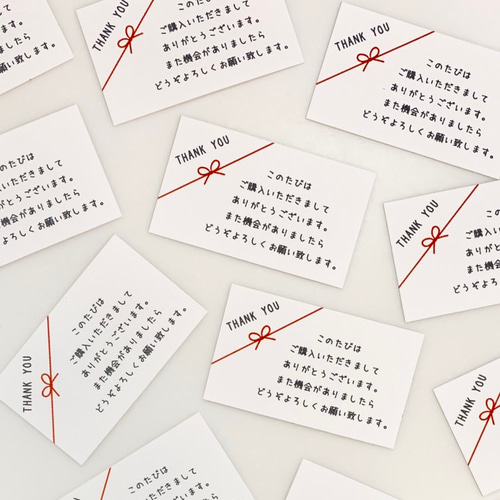 THANK YOU
このたびは
ご購入いただきまして
ありがとうございます。
また機会がありましたら
どうぞよろしくお願い致します。
THANK YOU
このたびは
ご購入いただきまして
ありがとうございます。
また機会がありましたら
どうぞよろしくお願い致します。
このたびは
ご購入いただきまして
ありがとうございます。
また機会がありましたら
どうぞよろしくお願い致します。
THANK YOU
このたびは
ご購入いただきまして
ありがとうございます。
また機会がありましたら
どうぞよろしくお願い致します。
THANK YOU
このたびは
THANK YOU
このたびは
ご購入いただきまして
ありがとうございます。
また機会がありましたら
どうぞよろしくお願い致します。
THANK YOU
このたびは
ご購入いただきまして
ありがとうございます。
また機会がありましたら
どうぞよろしくお願い致します。
THANK YOU
このたびは
ご購入いただきまして